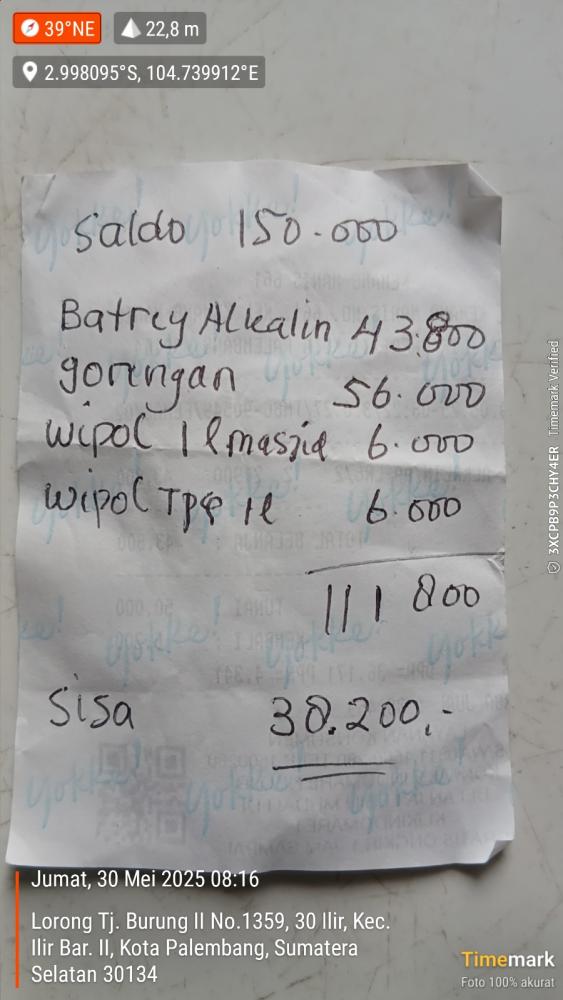 39°NE
22,8 m
2.998095°S, 104.739912°E
Saldo 150.000
Batrey Alkalin 43.800
gorengan 56.000
wipol 1 l masjid 6.000
wipol TPQ 1l 6.000
111 800
Sisa 38.200,-
yokke!
TOTAL BELANJA : 43,800
TUNAI : 50.000
Jumat, 30 Mei 2025 08:16
Lorong Tj. Burung II No.1359, 30 Ilir, Kec.
Ilir Bar. II, Kota Palembang, Sumatera
Selatan 30134
Timemark
Foto 100% akurat
3XCPB9P3CHY4ER Timemark Verified